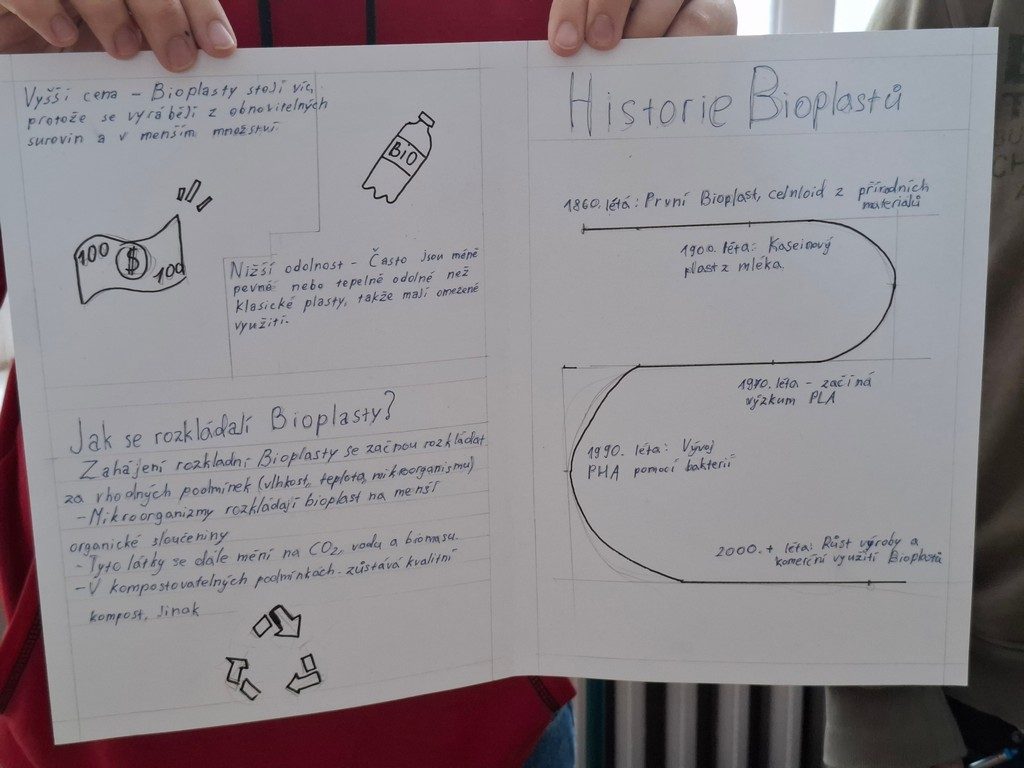 Vyšší cena - Bioplasty stojí víc,
protože se vyrábějí z obnovitelných
surovin a v menším množství.
BIO
100 $ 100
Nižší odolnost - Často jsou méně
pevné nebo tepelně odolné než
klasické plasty, takže mají omezené
využití.
Jak se rozkládají Bioplasty?
Zahájení rozkladní Bioplasty se začnou rozkládat
za vhodných podmínek (vlhkost, teplota, mikroorganismu)
- Mikroorganizmy rozkládají bioplast na menší
organické sloučeniny
- Tyto látky se dále mění na CO2, vodu a biomasu.
- V kompostovatelných podmínkách - zůstává kvalitní
kompost, Jinak
Historie Bioplastů
1860. létá: První Bioplast, celnloid z přírodních
materiálů
1900. léta: Kaseinový
plast z mléka.
1970. léta - začíná
výzkum PLA
1990. léta: Vývoj
PHA pomocí bakterií
2000. + léta: Růst výroby a
komerční využití Bioplastů